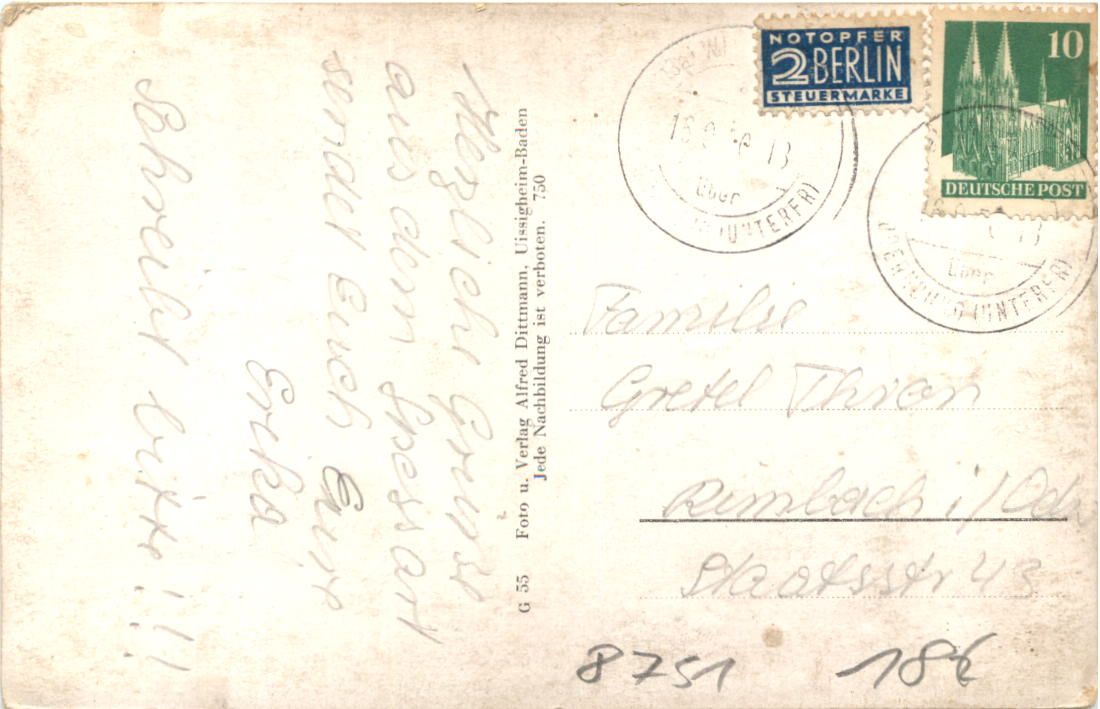 Herzliche Grüsse
aus dem Spessart
sendet Euch Eure
Erika
Schreibt bitte!!!
G 55 Foto u. Verlag Alfred Dittmann, Uissigheim-Baden
Jede Nachbildung ist verboten. 750
NOTOPFER
2 BERLIN
STEUERMARKE
10
DEUTSCHE POST
13
über
(UNTERFR)
13
über
(UNTERFR)
Familie
Gretel
Rimbach i/Odw
Staatsstr 43
8751 18€